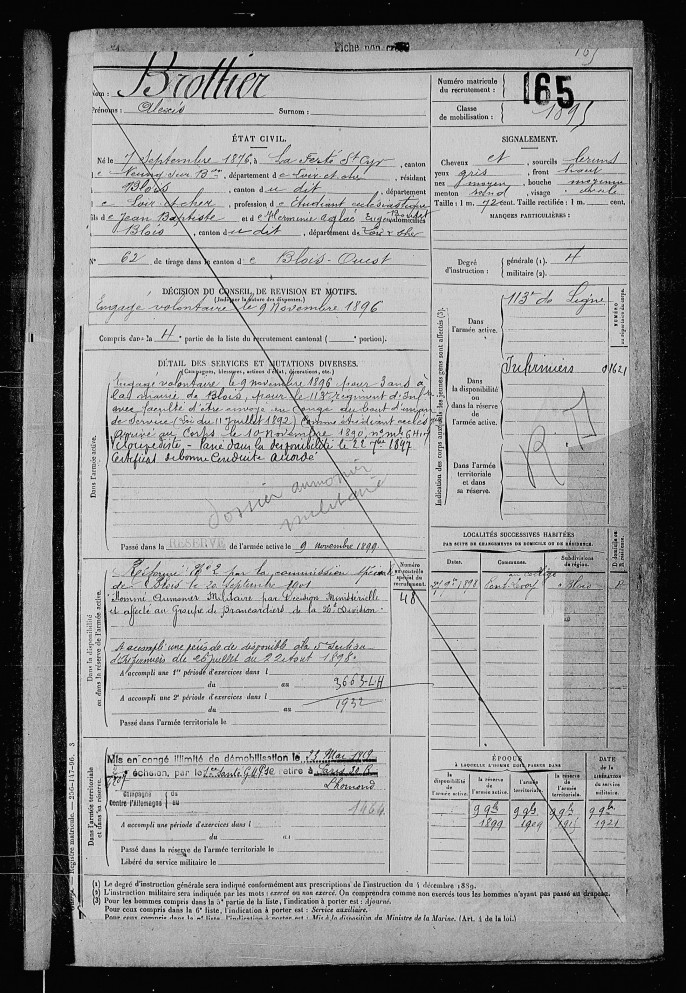 Fiche non
165
Nom : Brottier
Prénoms : Alexis Surnom :
Numéro matricule
du recrutement :
165
Classe
de mobilisation :
1895
ÉTAT CIVIL.
Né le 7 Septembre 1876, à La Ferté St Cyr, canton
de Neung sur Bon, département de Loir et cher, résident
Blois, canton du dit, département
de Loir et cher, profession de Etudiant ecclésiastique
fils de Jean Baptiste et de Herminie aglaé domiciliés
Blois, canton du dit, département de Loir & cher
N° 62 de tirage dans le canton de Blois-Ouest
SIGNALEMENT.
Cheveux et sourcils bruns
yeux gris, front haut
nez moyen, bouche moyenne
menton rond, visage ovale
Taille : 1 m. 72 cent. Taille rectifiée : 1 m. cent.
MARQUES PARTICULIÈRES :
Degré
d'instruction :
générale (1). 4
militaire (2).
DÉCISION DU CONSEIL DE REVISION ET MOTIFS.
(Indiquer la nature des dispenses.)
Engagé volontaire le 9 Novembre 1896
Compris dans la 4e partie de la liste du recrutement cantonal ( portion).
DÉTAIL DES SERVICES ET MUTATIONS DIVERSES.
(Campagnes, blessures, actions d'éclat, décorations, etc.)
Dans l'armée active.
Engagé volontaire le 9 novembre 1896 pour 3 ans à
la mairie de Blois, pour le 113e régiment d'Inf
avec faculté d'être envoyé en Congé au bout d'un an
de service (Loi du 11 Juillet 1892) comme étudiant
arrivé au Corps le 10 Novembre
Passé dans la disponibilité le 22 7bre 1897
Certificat de bonne Conduite accordé
dossier aumonier
militaire
Passé dans la RÉSERVE de l'armée active le 9 novembre 1899
Indication des corps auxquels les jeunes gens sont affectés (3).
NUMÉRO
au répertoire du corps.
Dans
l'armée active.
113e de Ligne
Dans
la disponibilité
ou dans la réserve
de l'armée active.
Infirmiers 01621
Dans
l'armée
territoriale
et dans
sa réserve.
LOCALITÉS SUCCESSIVES HABITÉES
PAR SUITE DE CHANGEMENTS DE DOMICILE OU DE RÉSIDENCE.
Dates. Communes. Subdivisions
de région.
D. domicile
R. résidence.
1898 Pont-Levoy Blois R
Dans la disponibilité
ou dans la réserve de l'armée active.
Réformé N° 2 par la commission spéciale
de Blois le 20 Septembre 1901
Nommé Aumonier Militaire par Décision Ministérielle
et affecté au Groupe de Brancardiers de la 26e Division.
Numéro
au contrôle
spécial du
recrutement.
48
A accompli une période de disponible à la 5e Section
d'Infirmiers du 26 Juillet au 22 Aout 1898.
A accompli une 1re période d'exercices dans l
du au
3663 LH
1932
A accompli une 2e période d'exercices dans l
du au
Passé dans l'armée territoriale le
Dans l'armée territoriale
et dans sa réserve.
Mis en congé illimité de démobilisation le 21 Mai 1919
échelon, par le
se retire à
Lhomond
Campagne du
Contre l'Allemagne au
1964
A accompli une période d'exercices dans l
du au
Passé dans la réserve de l'armée territoriale le
Libéré du service militaire le
ÉPOQUE
À LAQUELLE L'HOMME DOIT PASSER DANS
DATE
de la
LIBÉRATION
du service
militaire.
la
disponibilité
de l'armée active.
la
réserve
de l'armée active.
l'armée
territoriale.
la
réserve
de l'armée
territoriale.
9 9bre
1899
9 9bre
1909
9 9bre
1915
9 9bre
1921
Registre matricule. — 256-147-96. 3
(1) Le degré d'instruction générale sera indiqué conformément aux prescriptions de l'instruction du 4 décembre 1889.
(2) L'instruction militaire sera indiquée par les mots : exercé ou non exercé. On comprendra comme non exercés tous les hommes n'ayant pas passé au drapeau.
(3) Pour les hommes compris dans la 5e partie de la liste, l'indication à porter est : Ajourné.
Pour ceux compris dans la 6e liste, l'indication à porter est : Service auxiliaire.
Pour ceux compris dans la 7e liste, l'indication à porter est : Mis à la disposition du Ministre de la Marine. (Art. 4 de la loi.)